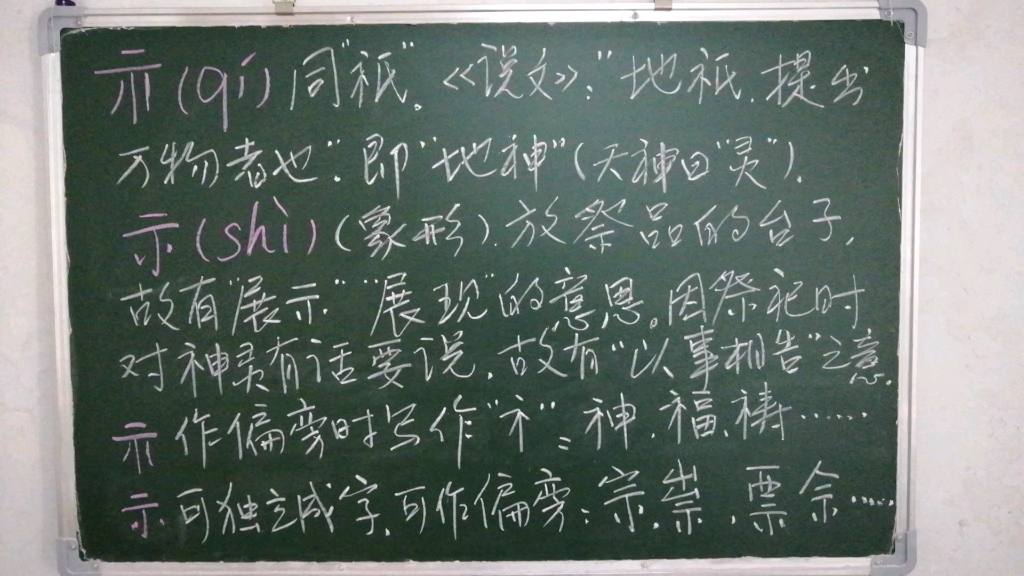 示(qí)同"祇"。《说文》:"地祇,提出
万物者也":即"地神"(天神曰"灵")。
示(shì)(象形).放祭品的台子,
故有"展示""展现"的意思。因祭祀时
对神灵有话要说,故有"以事相告"之意.
示作偏旁时写作"礻":神、福、祷……
示可独立成字,可作偏旁:宗、祟、票佘……